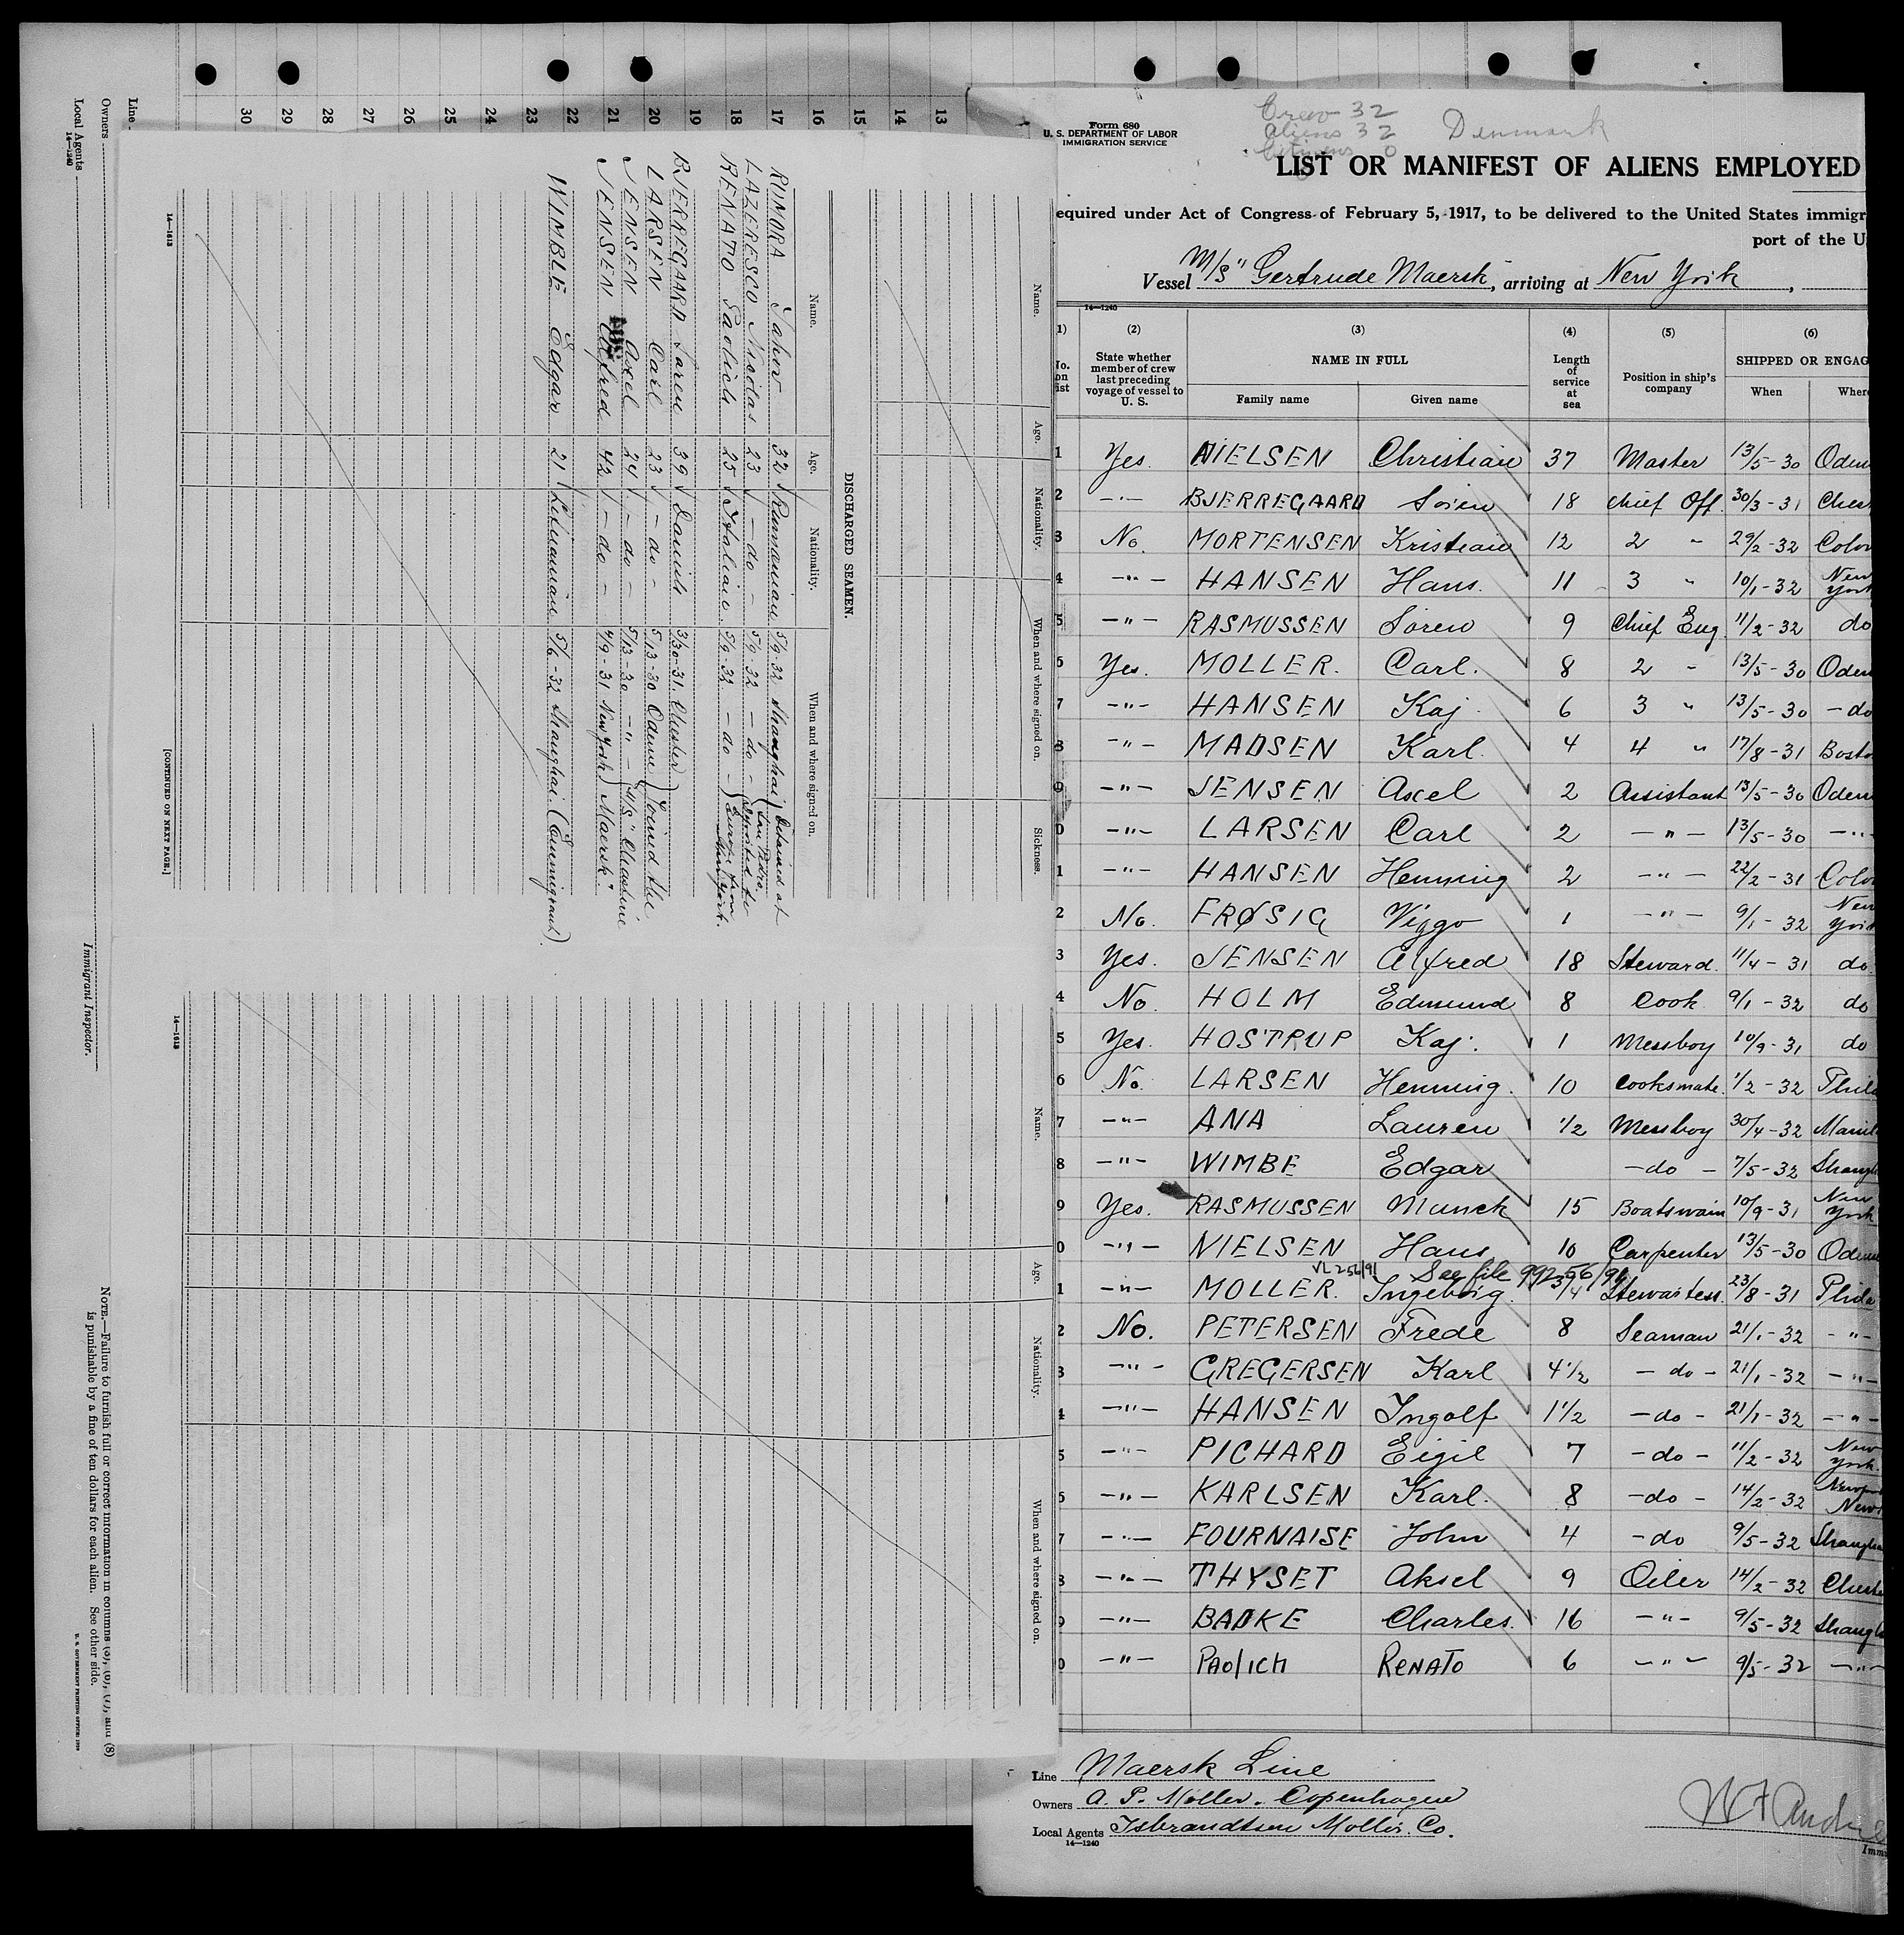 Crew 32
Aliens 32
Citizens 0
Denmark
Form 680
U. S. DEPARTMENT OF LABOR
IMMIGRATION SERVICE
LIST OR MANIFEST OF ALIENS EMPLOYED
equired under Act of Congress of February 5, 1917, to be delivered to the United States immigr
port of the U
Vessel M/S "Gertrude Maersk", arriving at New York,
14—1240
(2) (3) (4) (5) (6)
State whether member of crew last preceding voyage of vessel to U. S.
NAME IN FULL
Family name Given name
Length of service at sea
Position in ship's company
SHIPPED OR ENGAG
When Where
1 Yes. NIELSEN Christian 37 Master 13/5-30 Oden
2 -"- BJERREGAARD Sören 18 Chief Off. 30/3-31 Chest
3 No. MORTENSEN Kristian 12 2 " 29/2-32 Colon
4 -"- HANSEN Hans. 11 3 " 10/1-32 New York
5 -"- RASMUSSEN Sören 9 Chief Eng. 11/2-32 do
6 Yes. MOLLER. Carl. 8 2 " 13/5-30 Oden
7 -"- HANSEN Kaj 6 3 " 13/5-30 -do
8 -"- MADSEN Karl. 4 4 " 17/8-31 Bosto
9 -"- JENSEN Axel 2 Assistant 13/5-30 Oden
0 -"- LARSEN Carl 2 -"- 13/5-30 -"-
1 -"- HANSEN Henning 2 -"- 22/2-31 Colo
2 No. FRØSIG Viggo 1 -"- 9/1-32 New York
3 Yes. JENSEN Alfred 18 Steward. 11/4-31 do
4 No HOLM Edmund 8 Cook 9/1-32 do
5 Yes. HOSTRUP Kaj. 1 Messboy 10/9-31 do
6 No. LARSEN Henning. 10 Cooksmate. 1/2-32 Phila
7 -"- ANA Lauren 1/2 Messboy 30/4-32 Manil
8 -"- WIMBE Edgar -do- 7/5-32 Shangh
9 Yes. RASMUSSEN Munck 15 Boatswain 10/9-31 New York
0 -"- NIELSEN Hans 10 Carpenter 13/5-30 Oden
See file 99256/91
1 -"- MOLLER. Ingeborg. 3/4 Stewartess. 23/8-31 Phila
2 No. PETERSEN Frede 8 Seaman 21/1-32 -"-
3 -"- GREGERSEN Karl 4 1/2 -do- 21/1-32 -"-
4 -"- HANSEN Ingolf 1 1/2 -do- 21/1-32 -"-
5 -"- PICHARD Eigil 7 -do- 11/2-32 New York.
6 -"- KARLSEN Karl. 8 -do- 14/2-32 Newport News
7 -"- FOURNAISE John 4 -do 9/5-32 Shangha
8 -"- THYSET Aksel 9 Oiler 14/2-32 Chest
9 -"- BADKE Charles. 16 -"- 9/5-32 Shangh
0 -"- PAOLICH RENATO 6 -"- 9/5-32 -"-
Line Maersk Line
Owners A. P. Moller. Copenhagen
Local Agents Isbrandtsen Moller. Co.
14—1240
Name. Age. Nationality. When and where signed on. Sickness.
DISCHARGED SEAMEN.
Name. Age. Nationality. When and where signed on.
RIMORA Jahn 32 Rumanian 5/9-32 Shanghai
LAZERESCO Nicolas 23 -do- 5/9-32 -do-
RENATO Paolich 25 Italian. 5/9-32 -do-
Detained at San Pedro, deported to Europe from New York.
BJERREGAARD Sören 39 Danish 3/30-31. Chester
LARSEN Carl 23 -do- 5/13-30 Odense
JENSEN Axel 24 -do- 5/13-30 -"-
JENSEN Alfred 42 -do- 4/9-31 New York
Joined the M/S "Chastine Maersk".
WIMBLE Edgar 21 Lithuanian 5/6-32 Shanghai. (Emmigrant).
14—1613
[CONTINUED ON NEXT PAGE.]
Name. Age. Nationality. When and where signed on.
14—1613
13
14
15
16
17
18
19
20
21
22
23
24
25
26
27
28
29
30
Line
Owners
Local Agents
14—1240
Immigrant Inspector.
NOTE.—Failure to furnish full or correct information in columns (5), (6), (7), and (8)
is punishable by a fine of ten dollars for each alien. See other side.